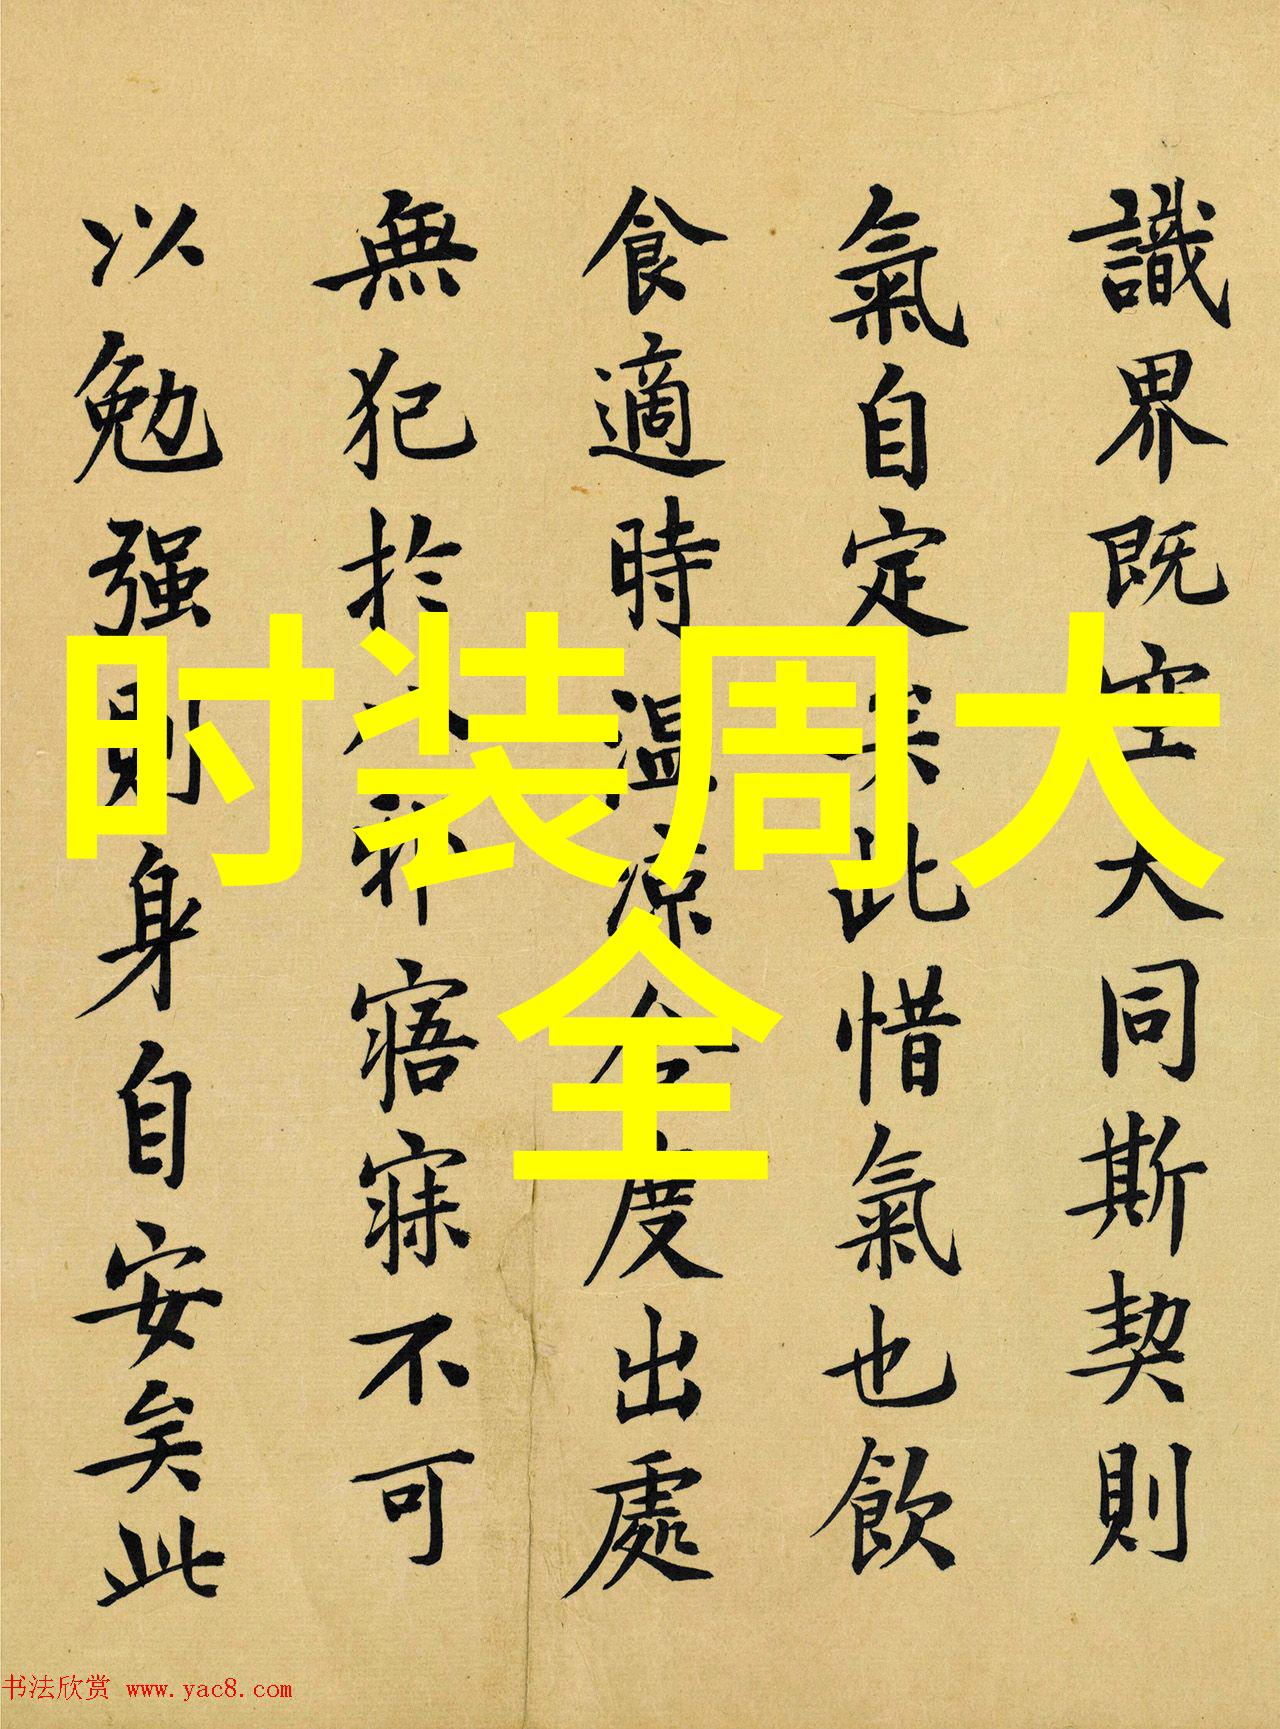 識界既空大同斯契則
氣自定矣此惜氣也飲
食適時温凉合度出處
無犯於八邪寤寐不可
以勉强則身自安矣此
时装周大
全
书法欣赏 www.yac8.com